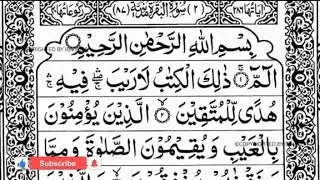 اٰیَاتُهَا ٢٨٦ (٢) سُوْرَةُ الْبَقَرَةِ مَدَنِيَّةٌ (٨٧) رُكُوْعَاتُهَا ٤٠
بِسْمِ اللّٰهِ الرَّحْمٰنِ الرَّحِيْمِ
الٓمّٓ ۚ ذٰلِكَ الْكِتٰبُ لَا رَيْبَ ۛ فِيْهِ ۛ
هُدًى لِّلْمُتَّقِيْنَ ۙ الَّذِيْنَ يُؤْمِنُوْنَ
بِالْغَيْبِ وَيُقِيْمُوْنَ الصَّلٰوةَ وَمِمَّا
Subscribe